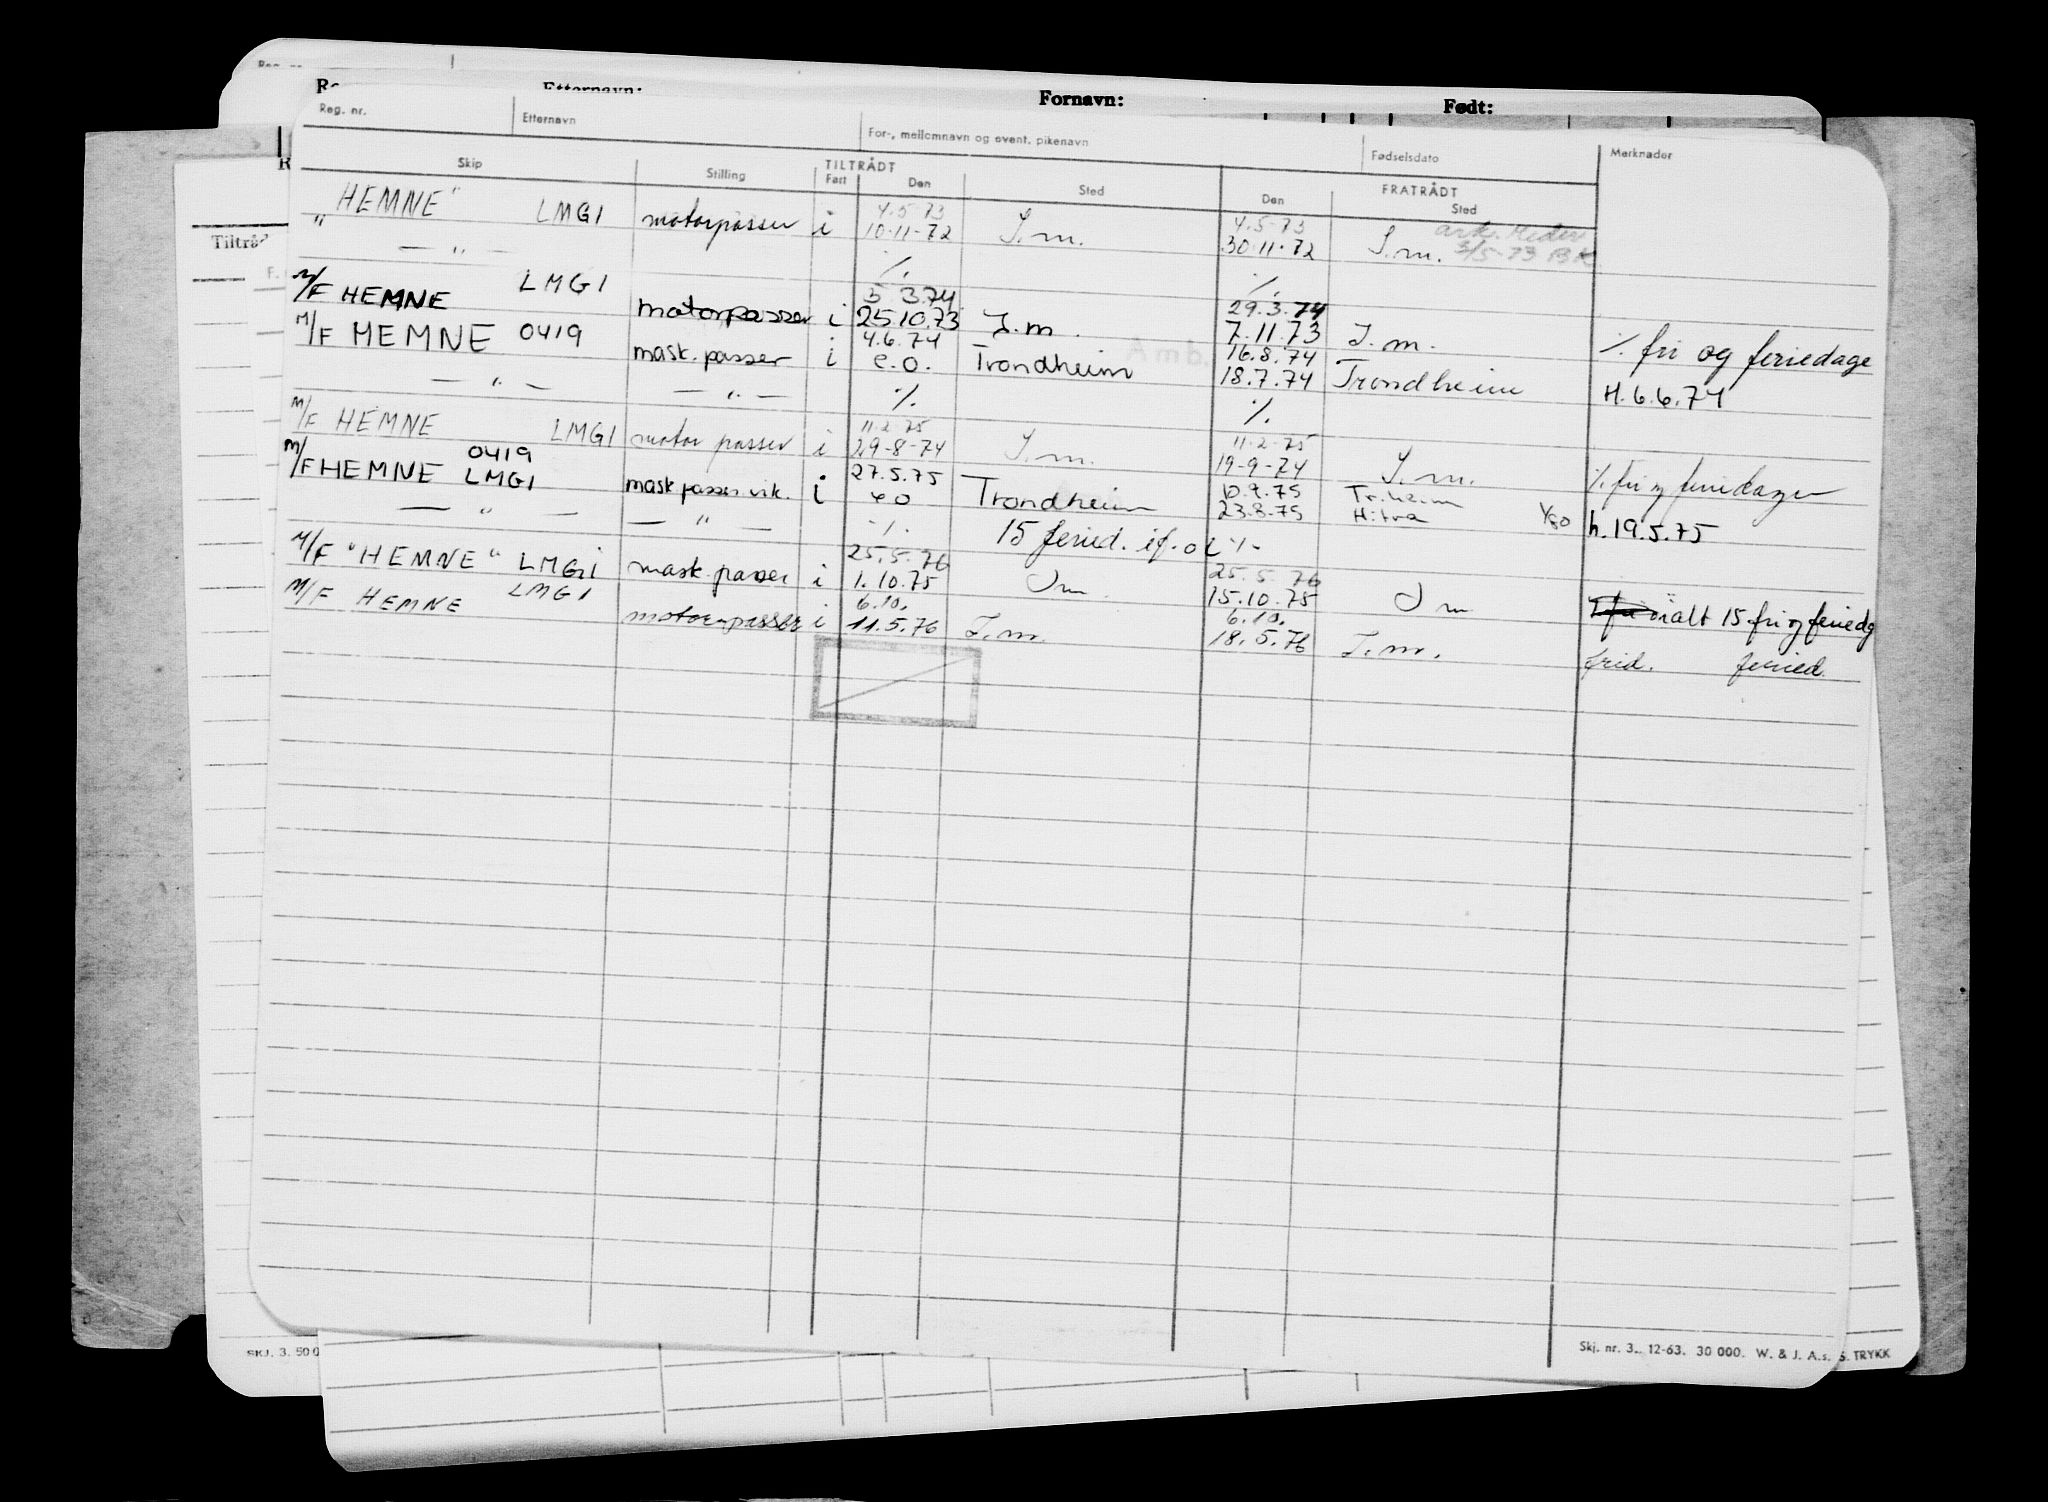 Reg. nr.
Etternavn:
Fornavn:
Født:
Reg. nr.
Etternavn
For-, mellomnavn og event. pikenavn
Fødselsdato
Merknader
Skip
Stilling
TILTRÅDT
Fart
Den
Sted
FRATRÅDT
Den
Sted
4.5-73 4.5-73 ark. Heder
"HEMNE" LMGI motorpasser i 10-11-72 I.m. 30-11-72 I.m. 3/5-73 BK
— " — ·/. ·/.
LMGI 5 3.74 29.3.74
M/F HEMNE motorpasser i 25.10.73 I.m. 7.11.73 I.m. ·/. fri og feriedage
4.6.74 16.8.74
M/F HEMNE 0419 mask.passer i e.o. Trondheim 18.7.74 Trondheim H.6.6.74
— " — — " — ·/. ·/.
11.2.75 11-2-75
M/F HEMNE LMGI motor passer i 29-8-74 I.m. 19-9-74 I.m. ·/. fri og feriedager
0419 27.5.75 10.9.75 Tr.heim
M/F HEMNE LMGI mask.passer vik. i eo Trondheim 23.8.75 Hitra 1/80 h.19.5.75
— " — — " — ·/. 15 feried. if. o ·/.
25.5.76 25.5 76
M/F "HEMNE" LMGI mask.passer i 1.10.75 Im 15.10.75 Im ialt 15 fri og feriedg
LMGI 6.10. 6.10.
M/F HEMNE motorpasser i 11.5.76 I.m. 18.5.76 I.m. frid. feried.
Amb.
Tiltråd
F.
SKJ. 3. 50 0
Skj. nr. 3. 12-63. 30 000. W. & J. A.s.
S. TRYKK